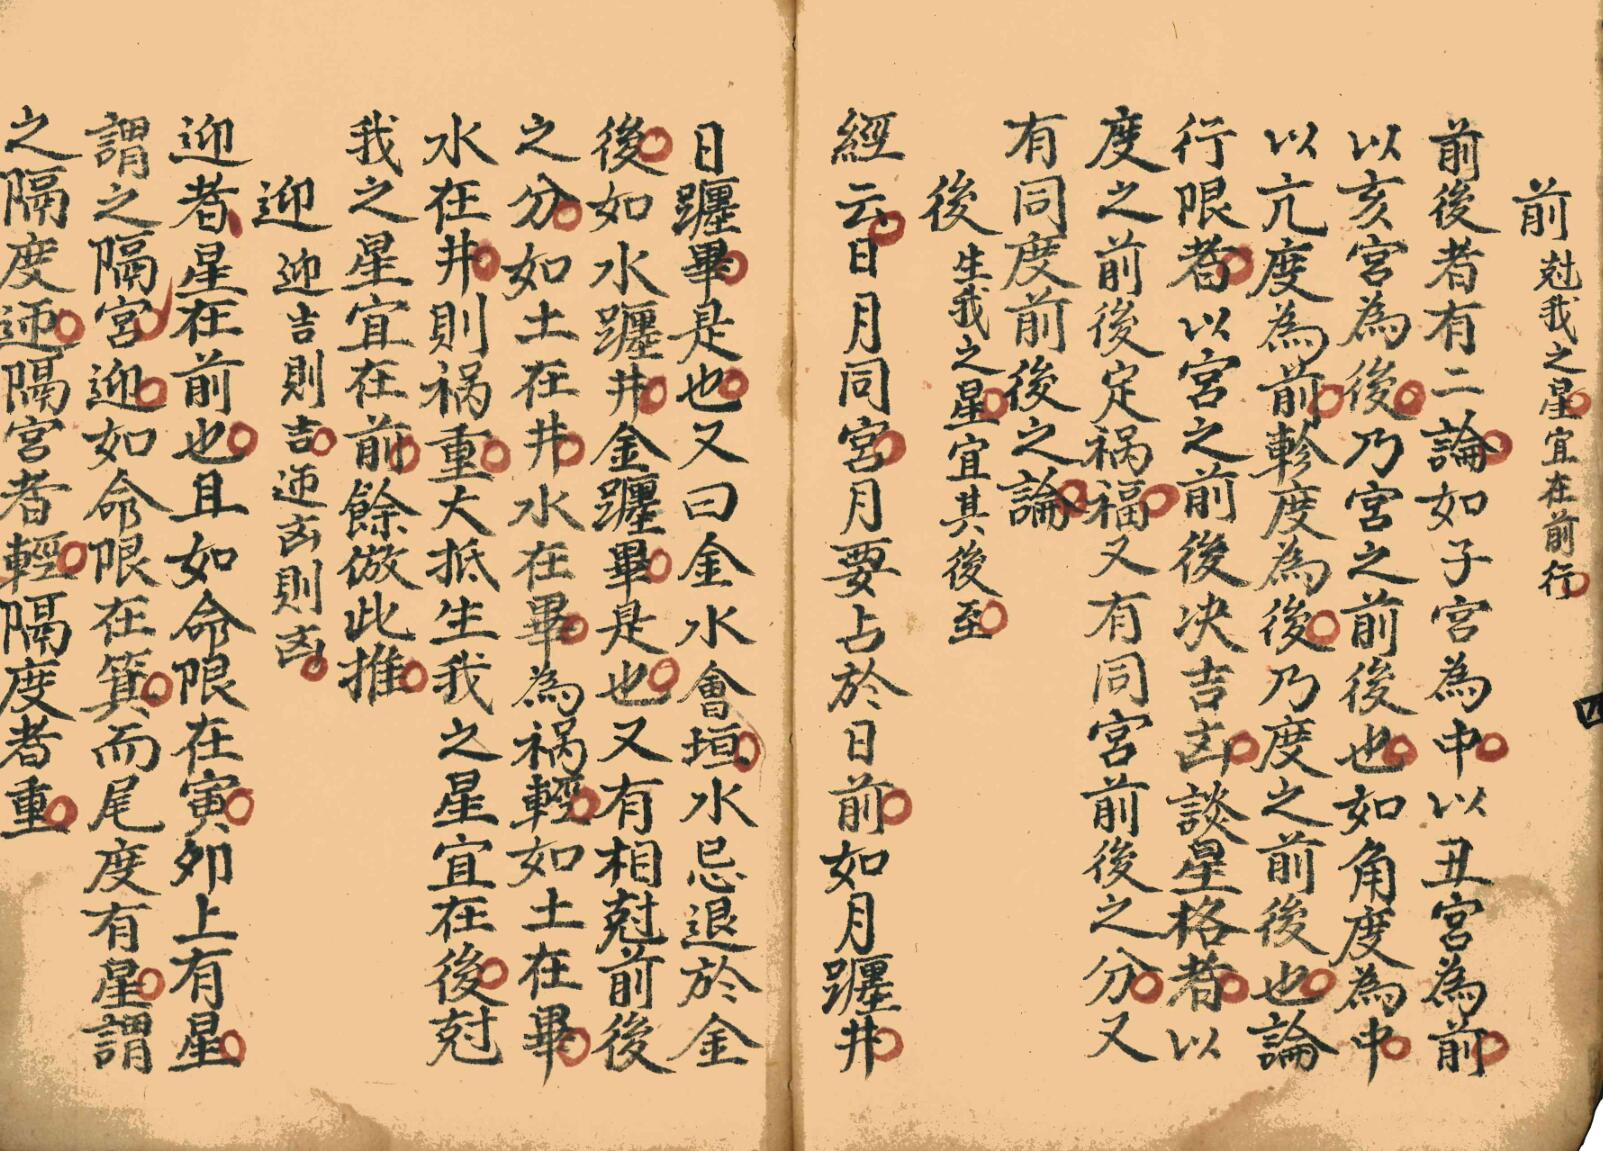 前 尅我之星宜在前行
前後者有二論如子宮為中以丑宮為前
以亥宮為後乃宮之前後也如角度為中
以亢度為前軫度為後乃度之前後也論
行限者以宮之前後决吉凶談星格者以
度之前後定禍福又有同宮前後之分又
有同度前後之論
後 生我之星宜其後至
經云日月同宮月要占於日前如月躔井
日躔畢是也又曰金水會垣水忌退於金
後如水躔井金躔畢是也又有相尅前後
之分如土在井水在畢為禍輕如土在畢
水在井則禍重大抵生我之星宜在後尅
我之星宜在前餘倣此推
迎 迎吉則吉迎凶則凶
迎者星在前也且如命限在寅夘上有星
謂之隔宮迎如命限在箕而尾度有星謂
之隔度迎隔宮者輕隔度者重